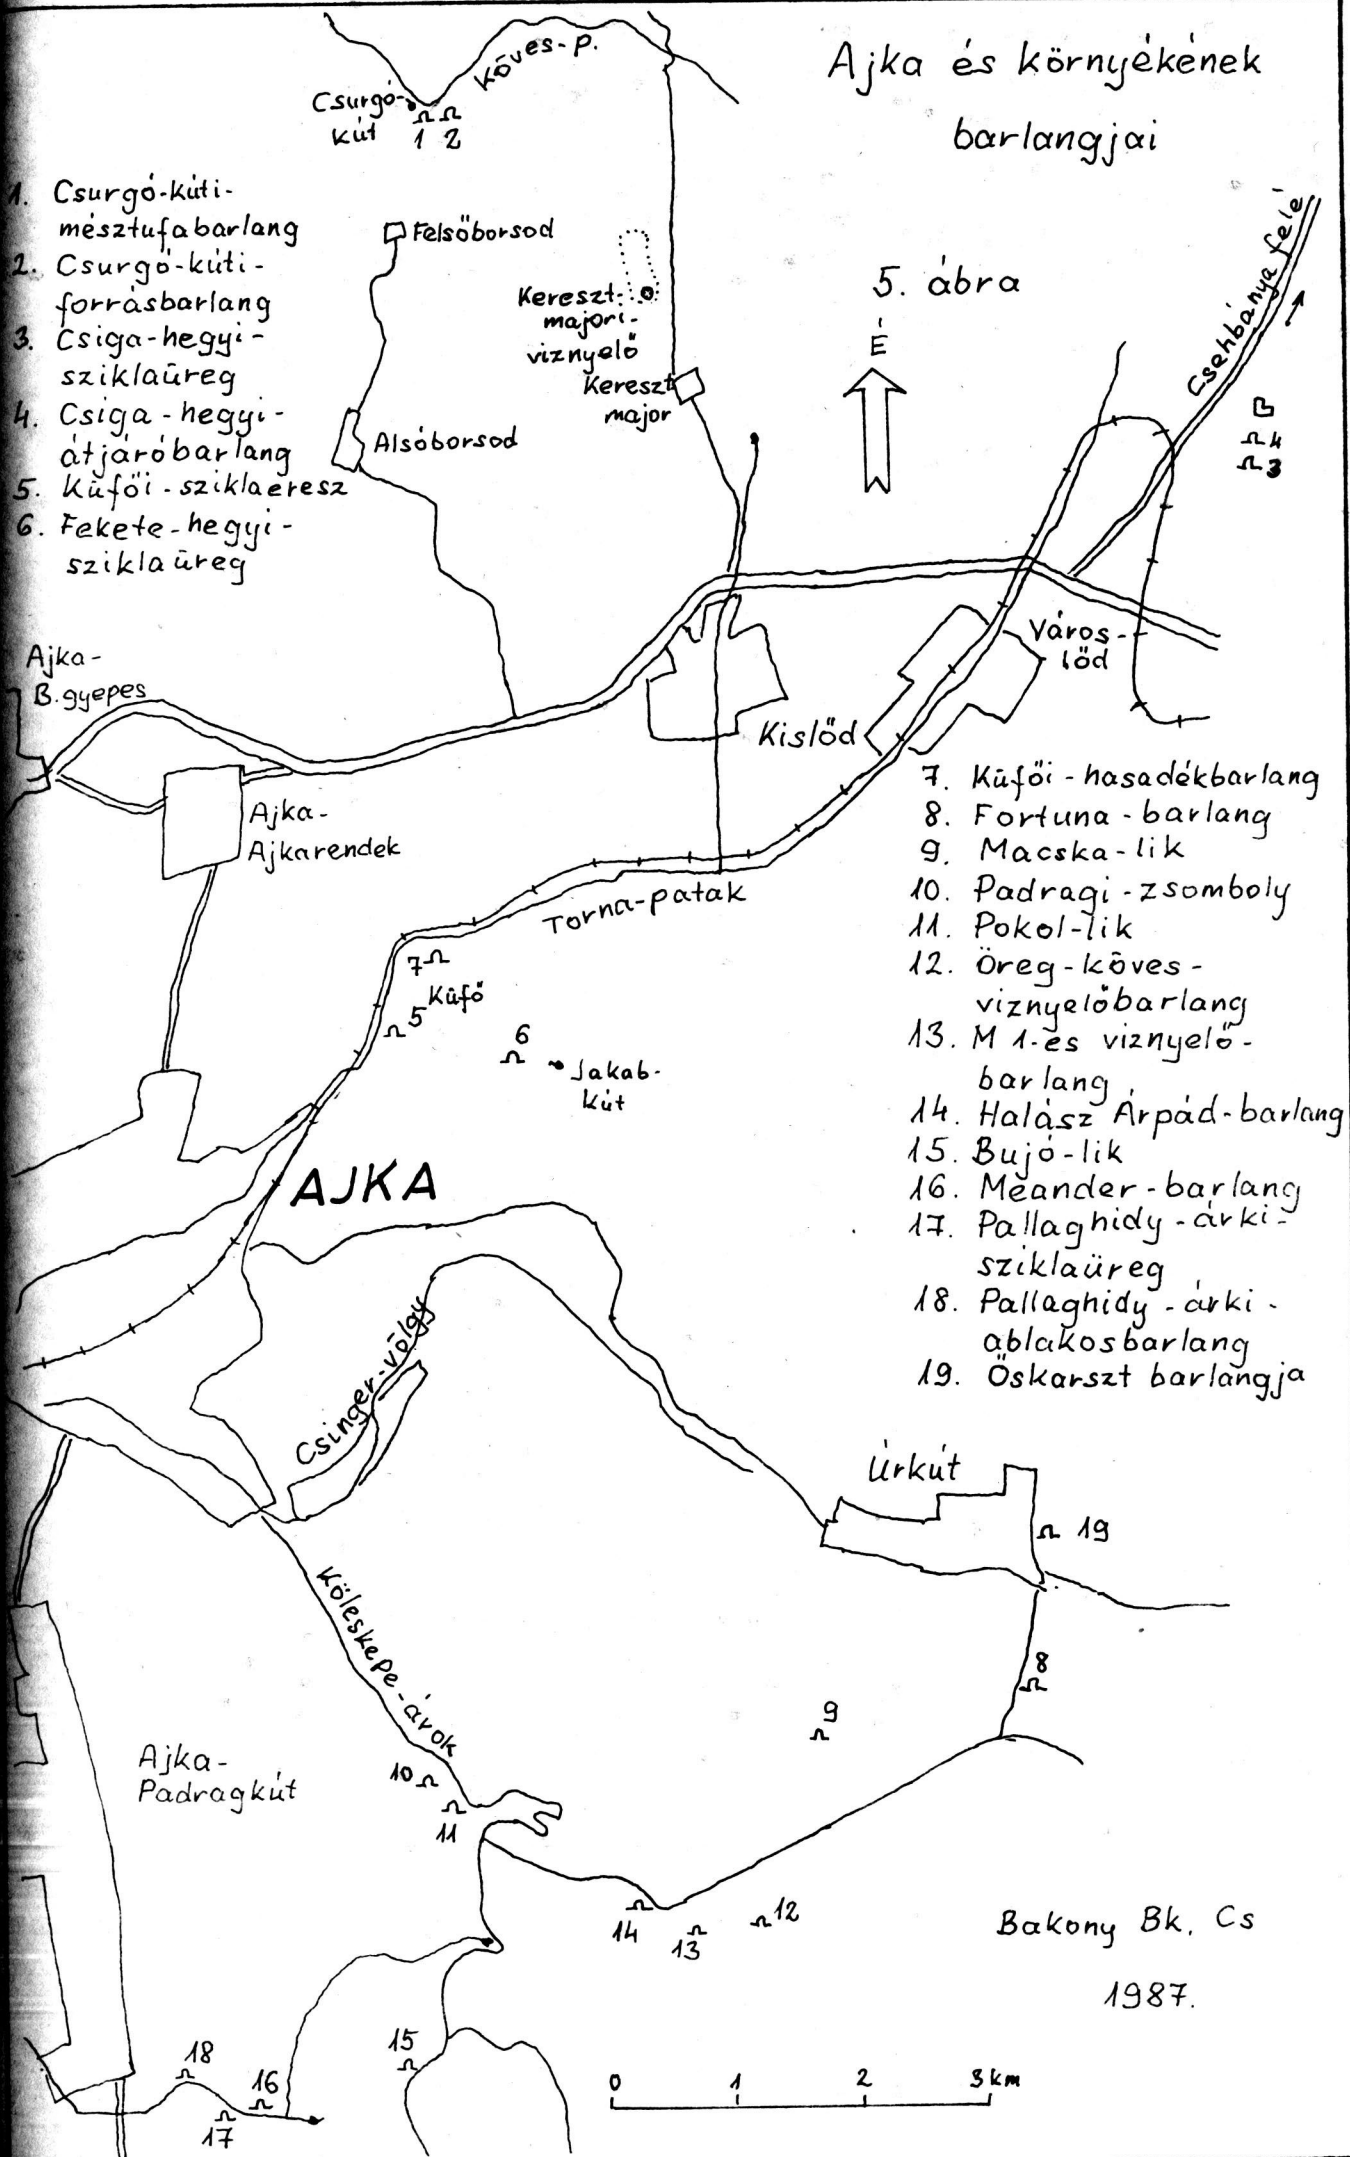 Ajka és környékének
barlangjai
5. ábra
É
Köves-p.
Csurgó-
kút
1 2
1. Csurgó-kúti-
mésztufabarlang
2. Csurgó-kúti-
forrásbarlang
3. Csiga-hegyi-
sziklaüreg
4. Csiga-hegyi-
átjáróbarlang
5. Küfői-sziklaeresz
6. Fekete-hegyi-
sziklaüreg
Felsőborsod
Kereszt-
majori-
víznyelő
Kereszt
major
Alsóborsod
Csehbánya felé
4
3
Ajka-
B.gyepes
Város-
lőd
Kislőd
Ajka-
Ajkarendek
Torna-patak
7
Küfő
5
6
Jakab-
kút
AJKA
7. Küfői-hasadékbarlang
8. Fortuna-barlang
9. Macska-lik
10. Padragi-zsomboly
11. Pokol-lik
12. Öreg-köves-
víznyelőbarlang
13. M 1-es víznyelő-
barlang
14. Halász Árpád-barlang
15. Bujó-lik
16. Meander-barlang
17. Pallaghidy-árki-
sziklaüreg
18. Pallaghidy-árki-
ablakosbarlang
19. Őskarszt barlangja
Csinger-völgy
Úrkút
19
Köleskepe-árok
8
9
Ajka-
Padragkút
10
11
14
13
12
15
18
16
17
Bakony Bk. Cs
1987.
0 1 2 3 km